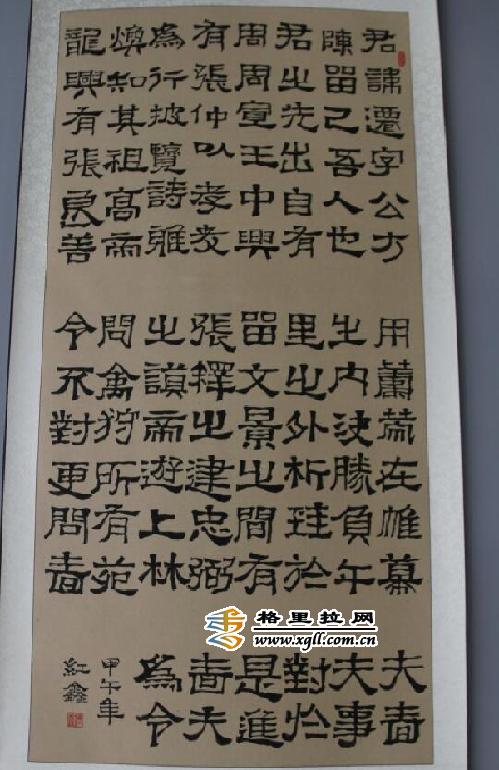 君諱遷字公方
陳留己吾人也
君之先出自有
周周宣王中興
有張仲以孝友
為行披覽詩雅
煥知其祖高帝
龍興有張良善
用籌策在帷幕
之內決勝負千
里之外析珪於
留文景之間有
張釋之建忠弼
之謨帝遊上林
問禽狩所有苑
令不對更問嗇
夫嗇
夫事
對於
是進
嗇夫
為令
甲午年
紅鑫
格里拉网
www.xgll.com.cn